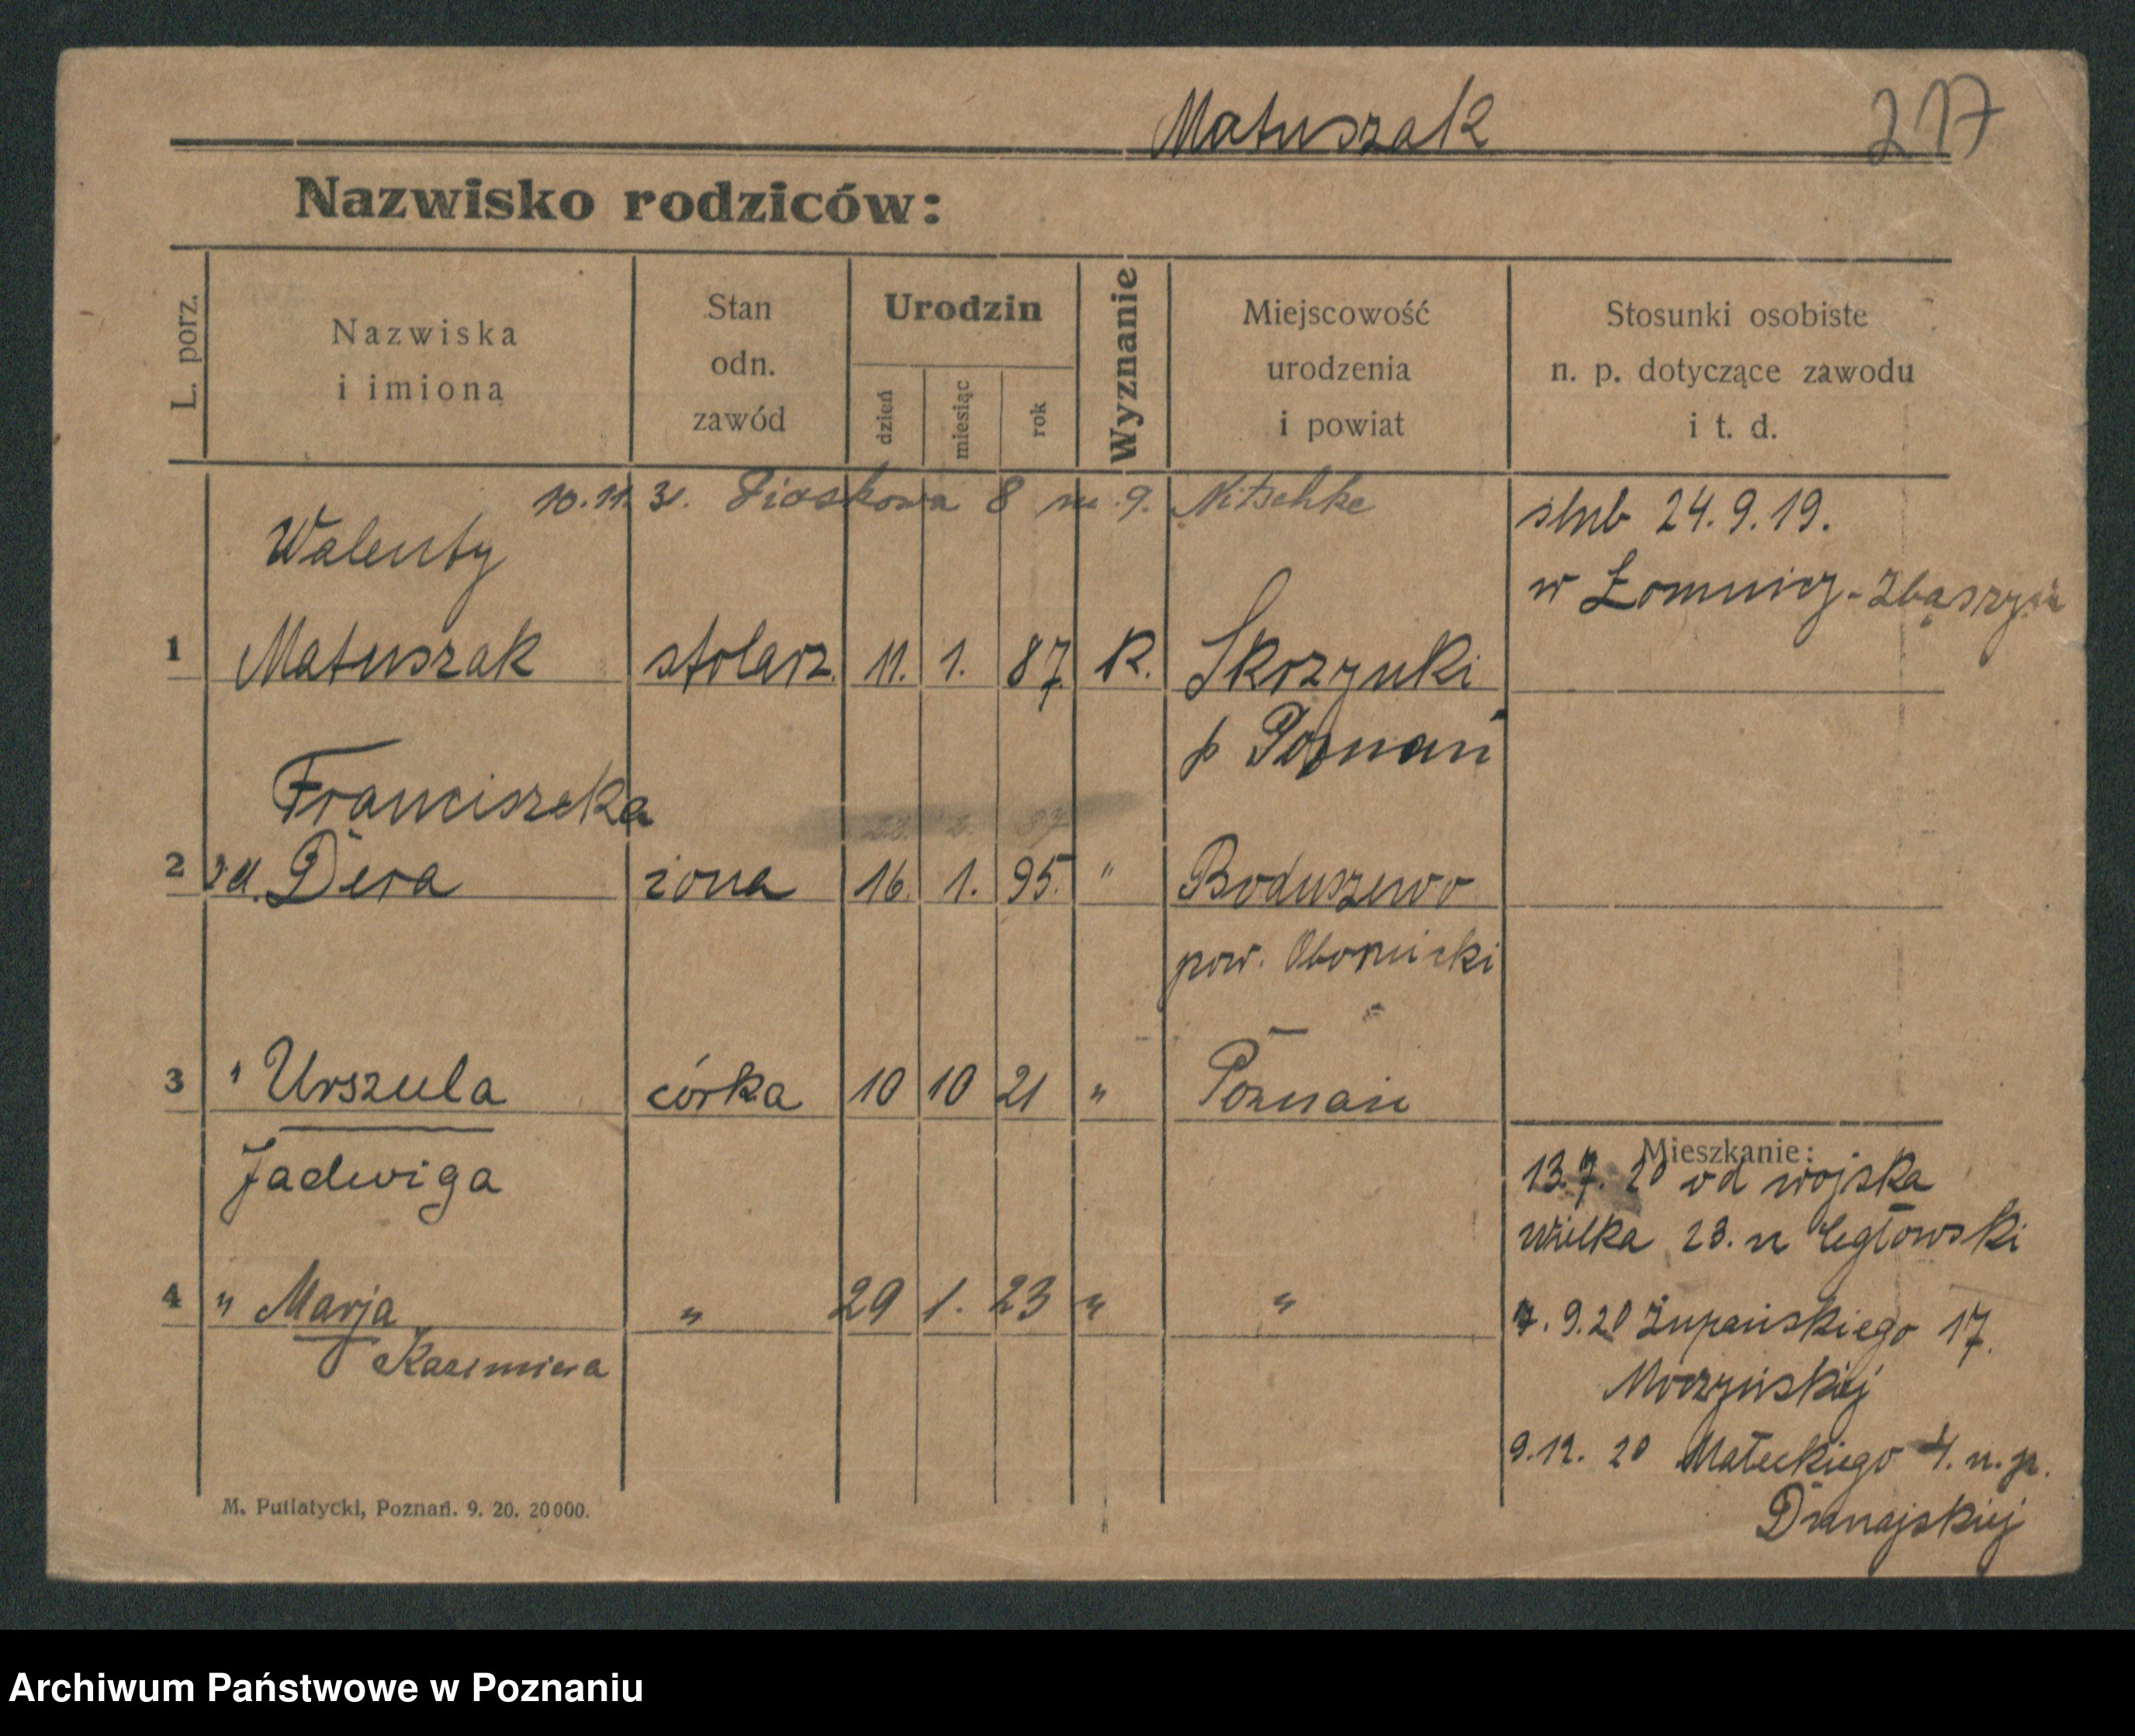 Matuszak 217
Nazwisko rodziców:
L. porz.
Nazwiska
i imiona
Stan
odn.
zawód
Urodzin
dzień
miesiąc
rok
Wyznanie
Miejscowość
urodzenia
i powiat
Stosunki osobiste
n. p. dotyczące zawodu
i t. d.
10.11.31. Piaskowa 8 m. 9. Nitschke
ślub 24.9.19.
w Łomnicy-Zbąszyń
Walenty
1 Matuszak stolarz 11. 1. 87 K. Skorzynki
p Poznań
Franciszka
2 zd. Dera żona 16. 1. 95. " Boduszewo
pow. Obornicki
3 " Urszula córka 10 10 21 " Poznań
Jadwiga
4 " Marja " 29 1. 23 " "
Kazimiera
Mieszkanie:
13.7.20 od wojska
Wielka 23. u Żegłowski
7.9.20 Żupańskiego 17.
Moczyńskiej
9.12.20 Małeckiego 4. u. p.
Dunajskiej
M. Putiatycki, Poznań. 9. 20. 20000.
Archiwum Państwowe w Poznaniu